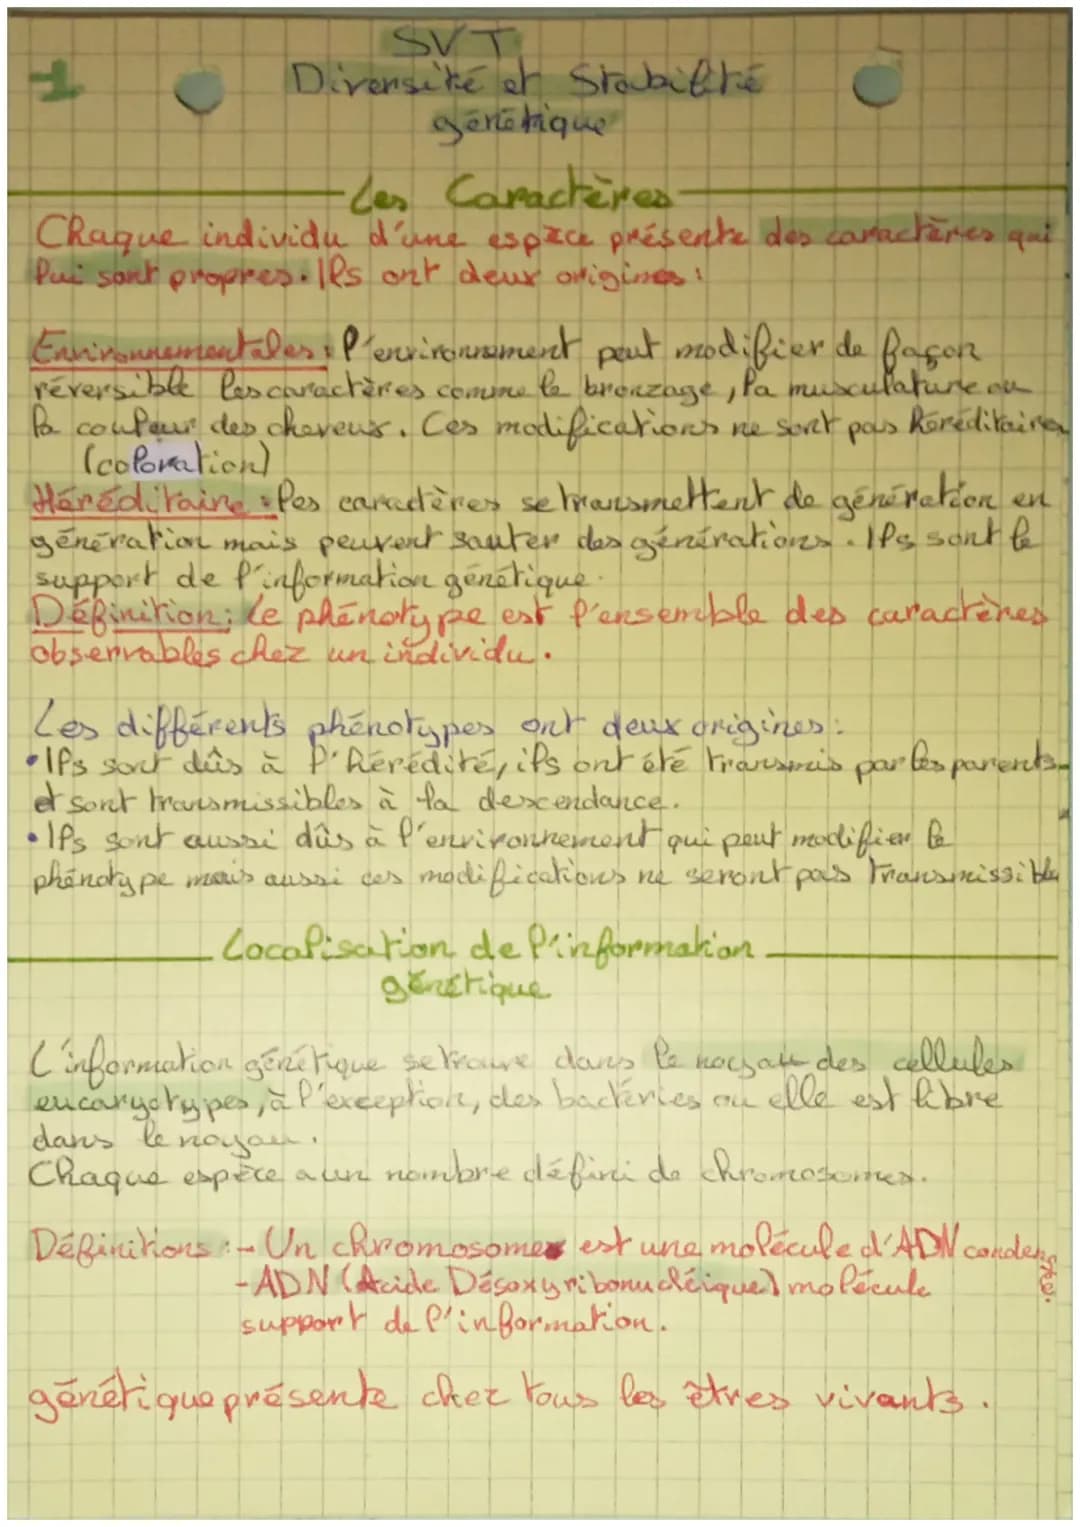 1
SVT
Diversité et Stabilité
génétique
Les Caractères
Chaque individu d'une espèce présente des caractères qui
lui sont propres. Ils ont deux origines :
Environnementales : l'environnement peut modifier de façon
réversible les caractères comme le bronzage, la musculature ou
la couleur des cheveux. Ces modifications ne sont pas héréditaires
(coloration)
Héréditaire : les caractères se transmettent de génération en
génération mais peuvent sauter des générations. Ils sont le
support de l'information génétique.
Définition : Le phénotype est l'ensemble des caractères
observables chez un individu.
Les différents phénotypes ont deux origines :
• Ils sont dûs à l'hérédité, ils ont été transmis par les parents
et sont transmissibles à la descendance.
• Ils sont aussi dûs à l'environnement qui peut modifier le
phénotype mais aussi ces modifications ne seront pas transmissible
Localisation de l'information
génétique
L'information génétique se trouve dans le noyau des cellules
eucaryotypes, à l'exception, des bactéries ou elle est libre
dans le noyau.
Chaque espèce a un nombre défini de chromosomes.
Définitions : - Un chromosomes est une molécule d'ADN condensée.
- ADN (Acide Désoxyribonucléique) molécule
support de l'information.
génétique présente chez tous les êtres vivants.